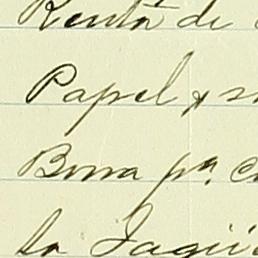 Renta de
Papel y
Borra pa.
la Jagü